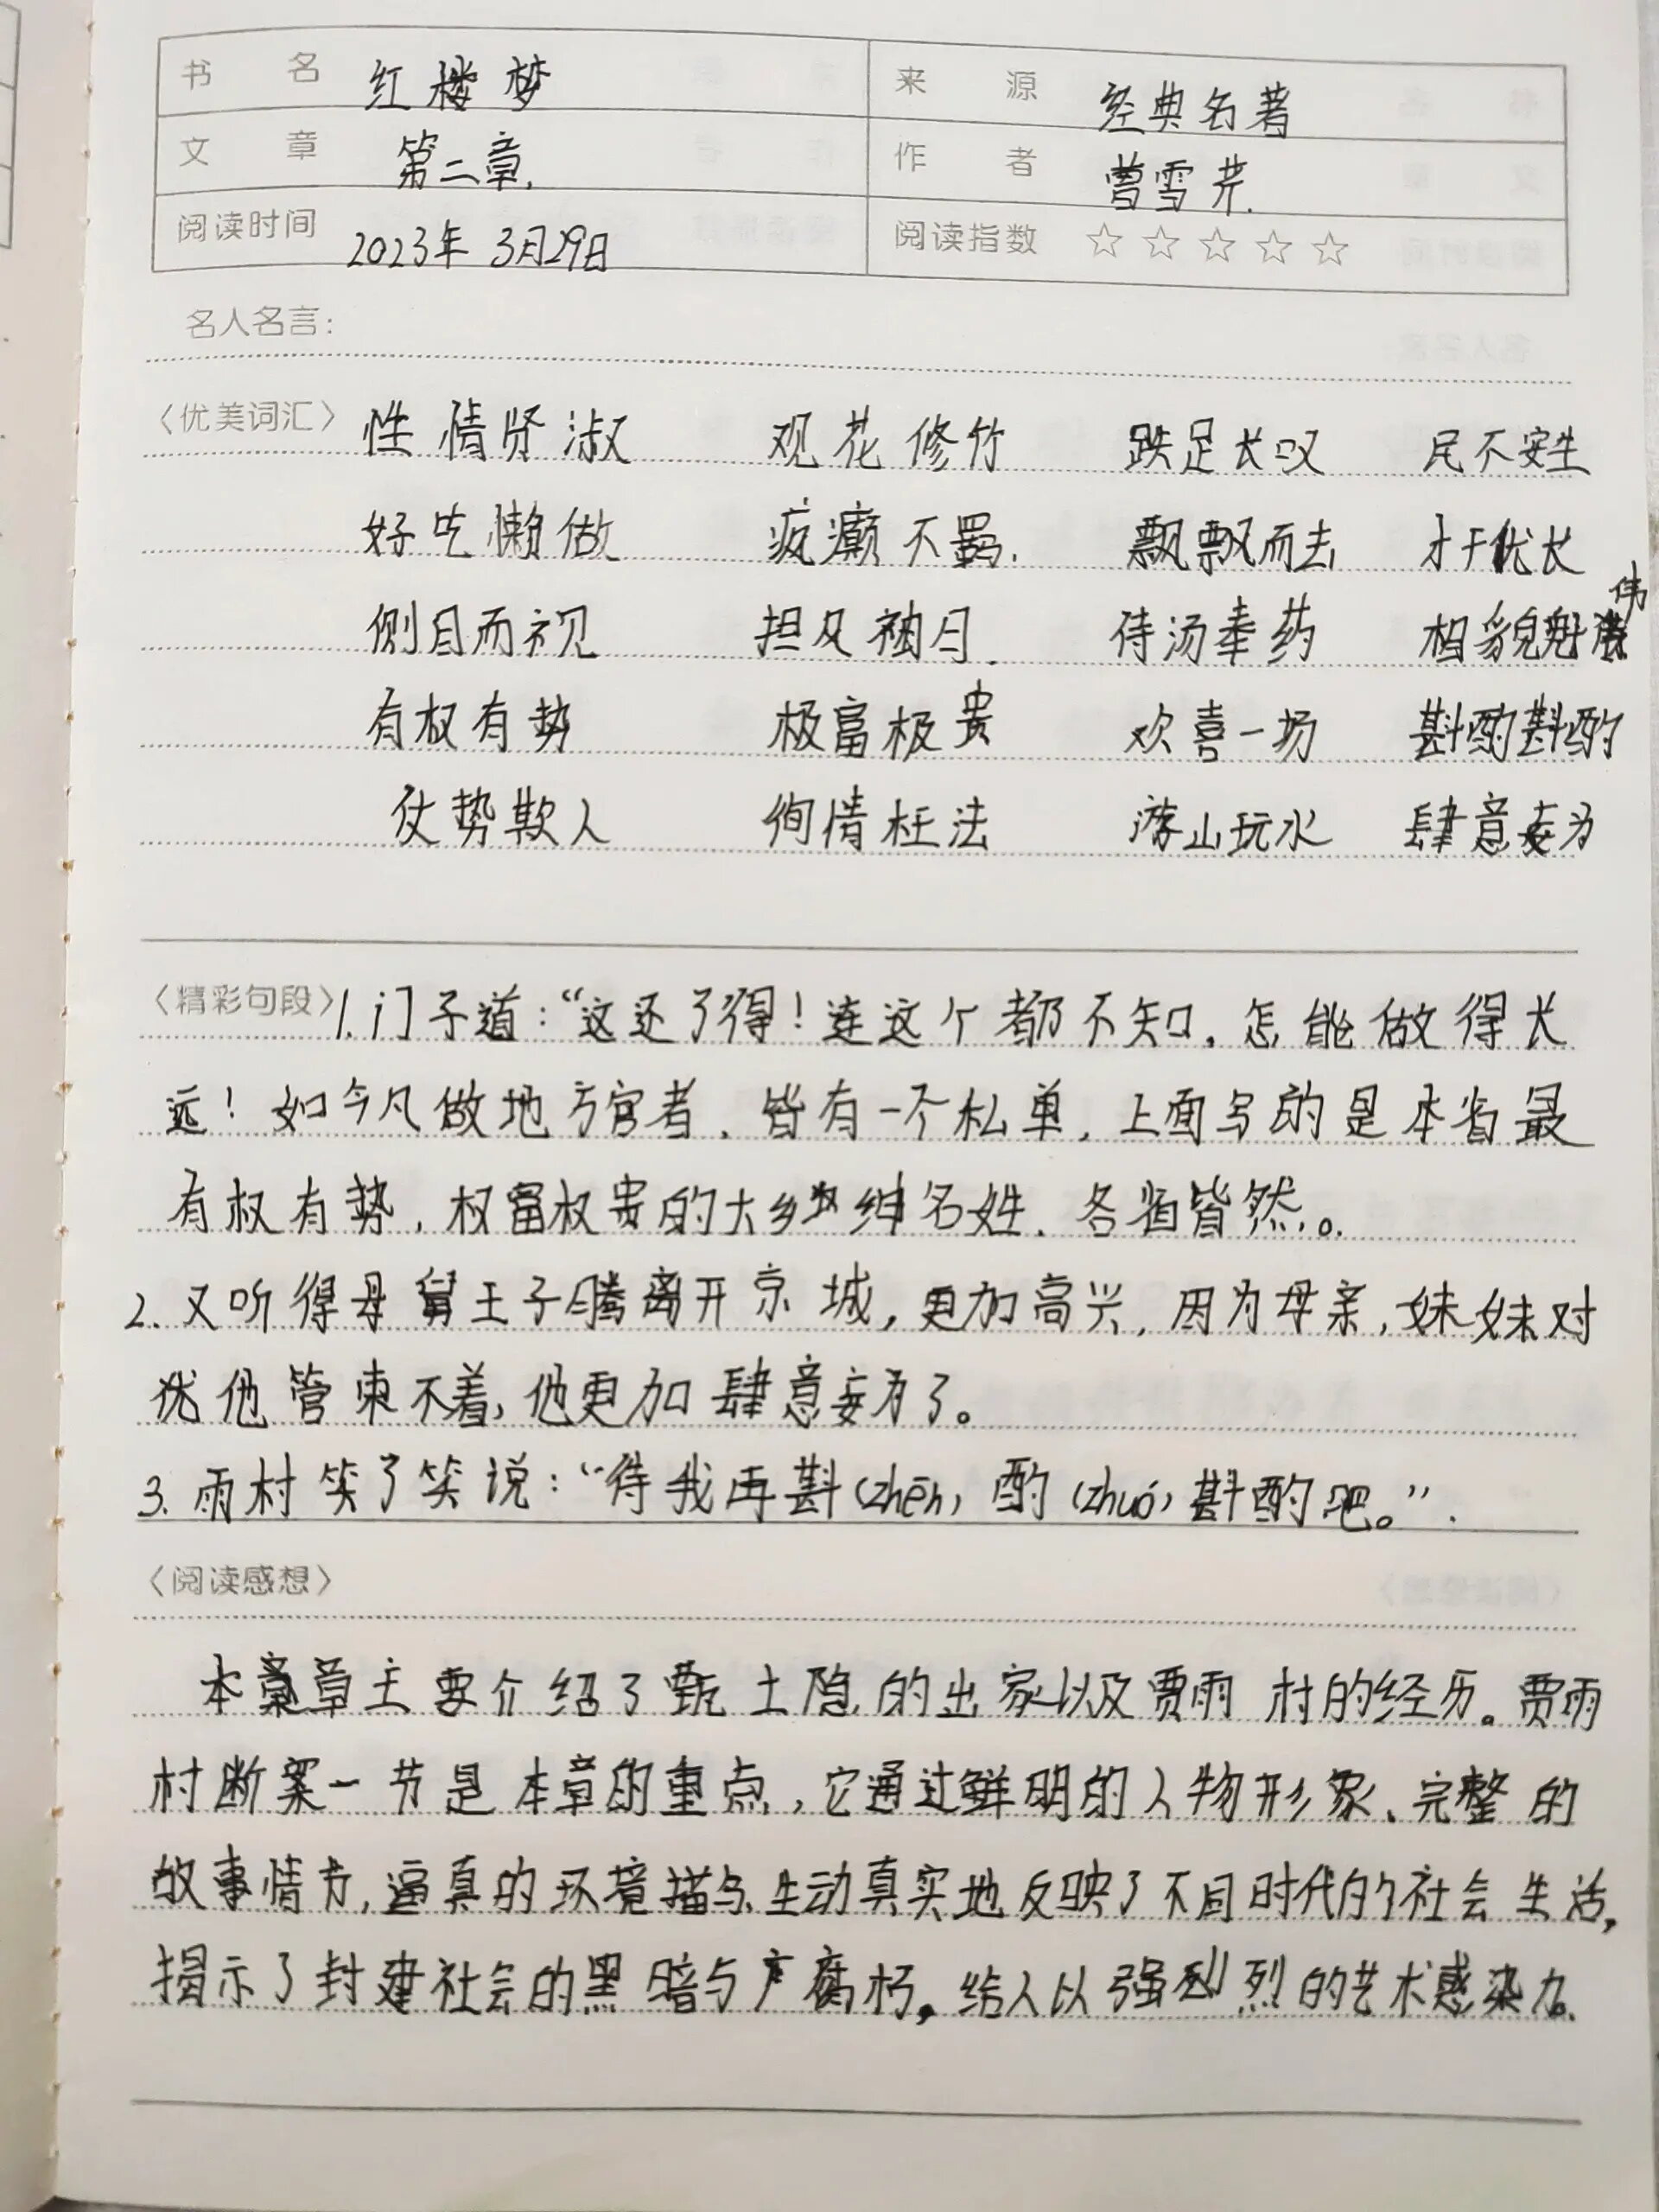 书名 红楼梦 来源 经典名著
文章 第二章. 作者 曹雪芹.
阅读时间 2023年3月29日 阅读指数 ☆☆☆☆☆
名人名言：
〈优美词汇〉 性情贤淑 观花修竹 跌足长叹 民不安生
好吃懒做 疯癫不羁. 飘飘而去 才干优长
侧目而视 担风袖月. 侍汤奉药 相貌魁伟
有权有势 极富极贵 欢喜一场 斟酌斟酌
仗势欺人 徇情枉法 游山玩水 肆意妄为
〈精彩句段〉 1.门子道：“这还了得！连这个都不知，怎能做得长
远！如今凡做地方官者，皆有一个私单，上面写的是本省最
有权有势，权富权贵的大乡绅名姓，各省皆然。
2.又听得母舅王子腾离开京城，更加高兴，因为母亲，妹妹对
犹他管束不着，他更加肆意妄为了。
3.雨村笑了笑说：“待我再斟(zhēn)酌(zhuó)斟酌吧。”.
〈阅读感想〉
本章主要介绍了甄士隐的出家以及贾雨村的经历。贾雨
村断案一节是本章的重点，它通过鲜明的人物形象、完整的
故事情节，逼真的环境描写生动真实地反映了不同时代的社会生活，
揭示了封建社会的黑暗与腐朽，给人以强烈的艺术感染力。